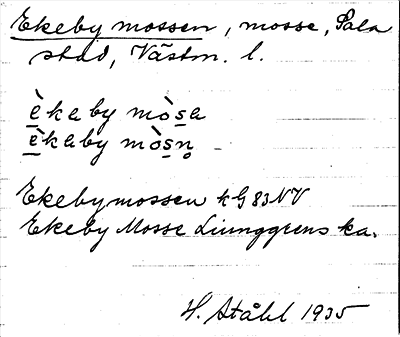 Ekeby mossen, mosse, Sala
stad, Västm. l.
è̲kaby mòs̲a
è̲kaby mòs̲n̥
Ekebymossen kG 83 NV
Ekeby Mosse Liunggrens ka.
H. Ståhl 1935